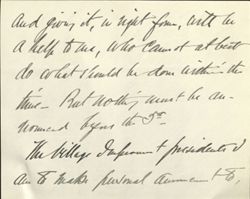 And giving it, in right form, will be
a help to me, who cannot at best
do what should be done within the
time – But nothing must be an-
nounced the 5th
The Village Improvement presidents
am to make personal to